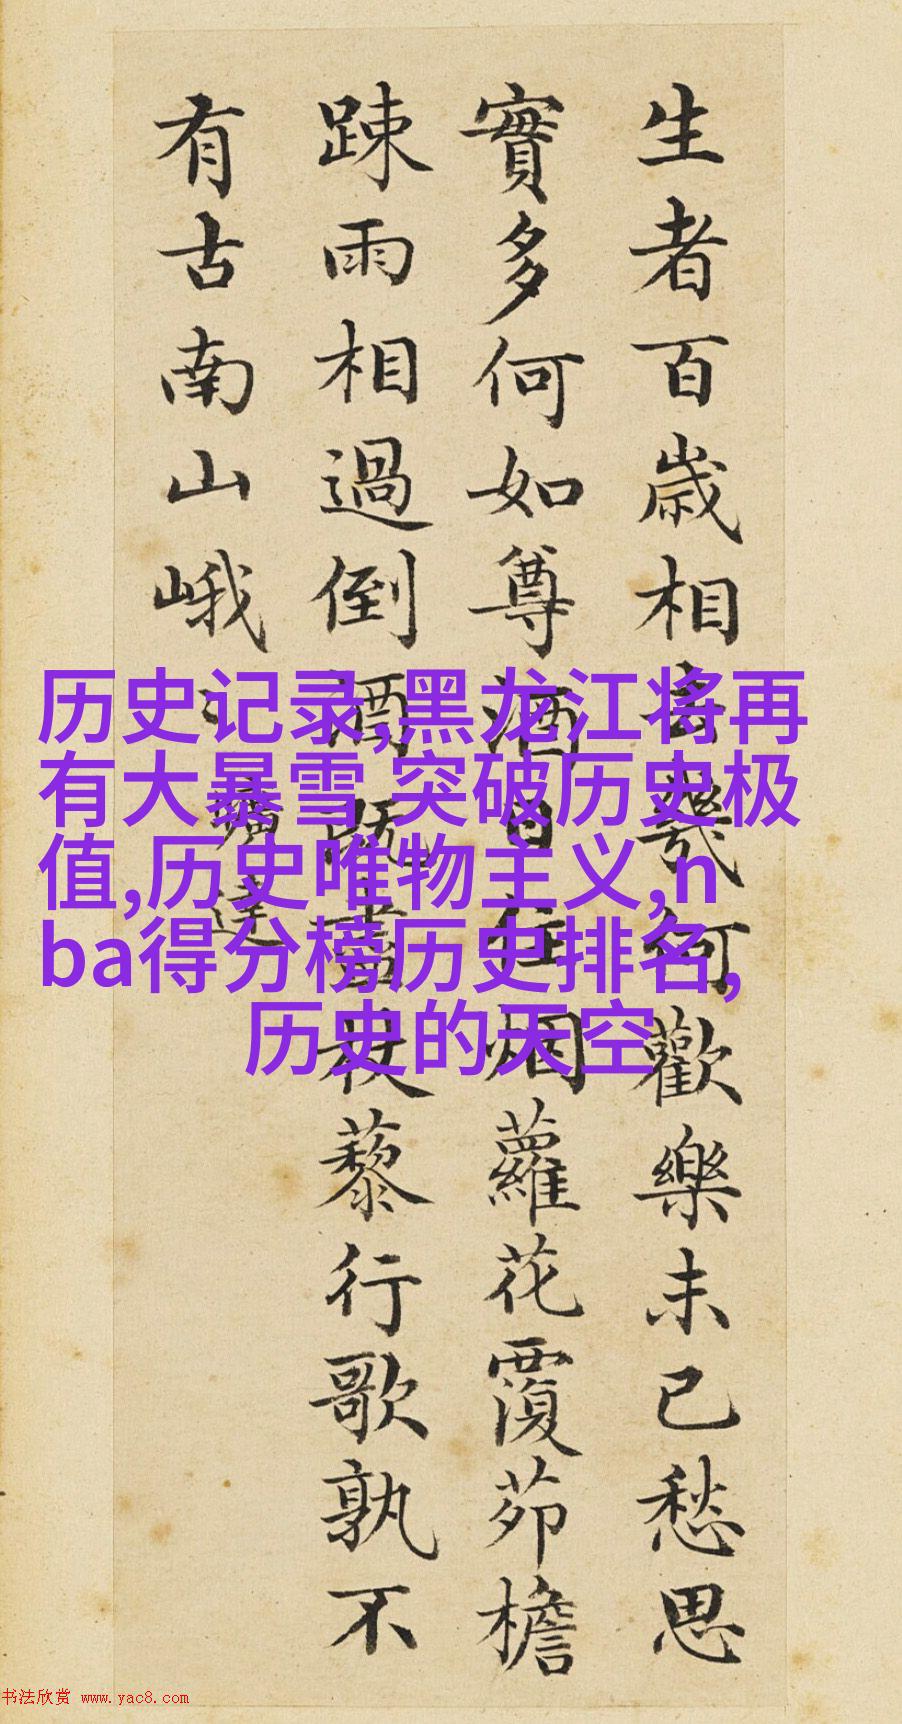 生者百歲相去幾何歡樂未已愁思
實多何如尊酒日往烟蘿花覆茆檐
踈雨相過倒酒既盡杖藜行歌孰不
有古南山峨
達
历史记录,黑龙江将再
有大暴雪,突破历史极
值,历史唯物主义,n
ba得分榜历史排名,
历史的天空
书法欣赏 www.yac8.com